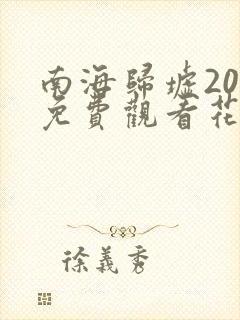 南海歸墟20
免費觀看花
徐義秀